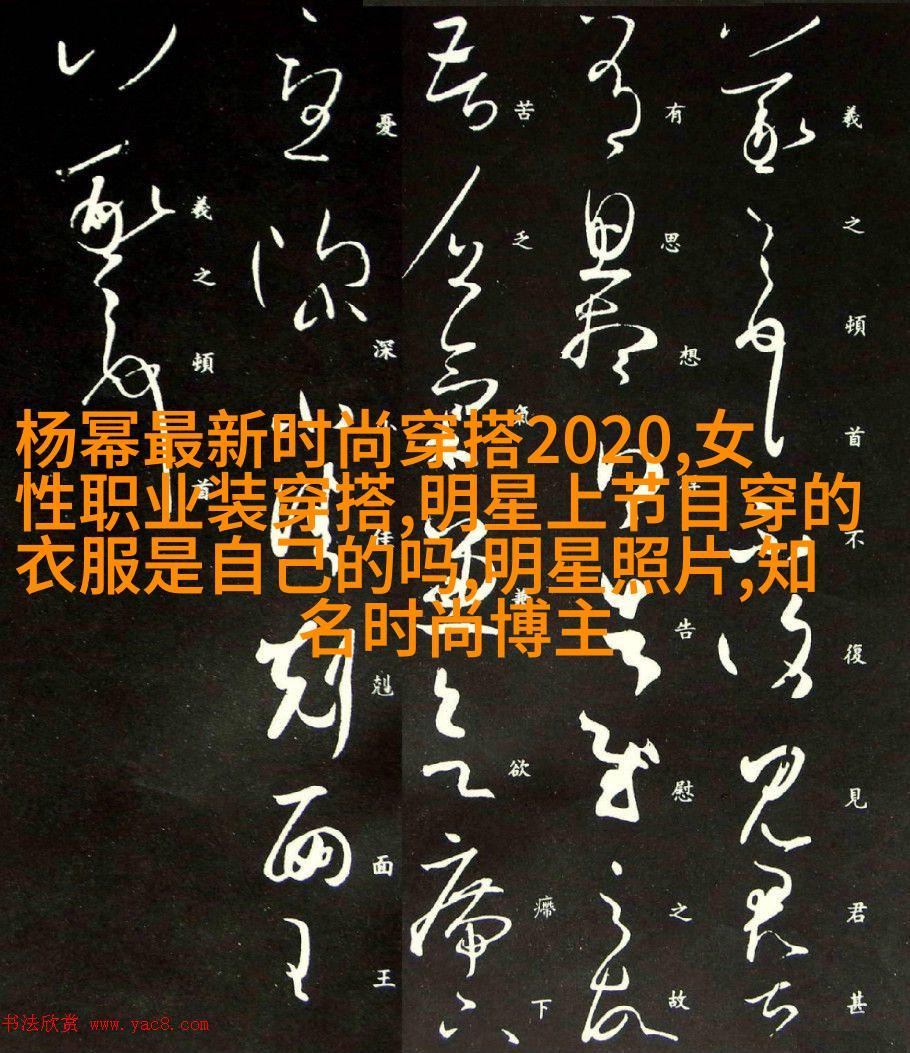 羲之頓首不復見君甚
有思想告慰之故
苦乏氣兼欲下
憂深不佳剋面王
羲之頓首
杨幂最新时尚穿搭2020,女
性职业装穿搭,明星上节目穿的
衣服是自己的吗,明星照片,知
名时尚博主
书法欣赏 www.yac8.com